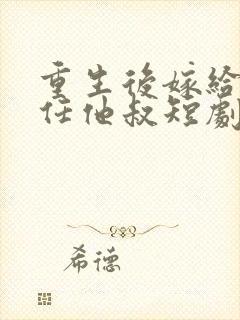 重生後嫁給
任他叔短劇
希德